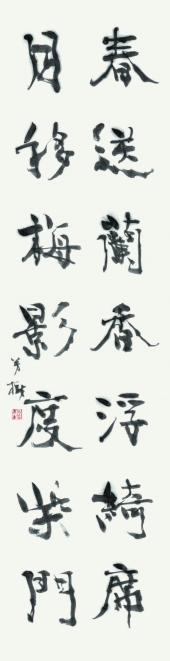 春送蘭香浮綺席
月移梅影度柴門